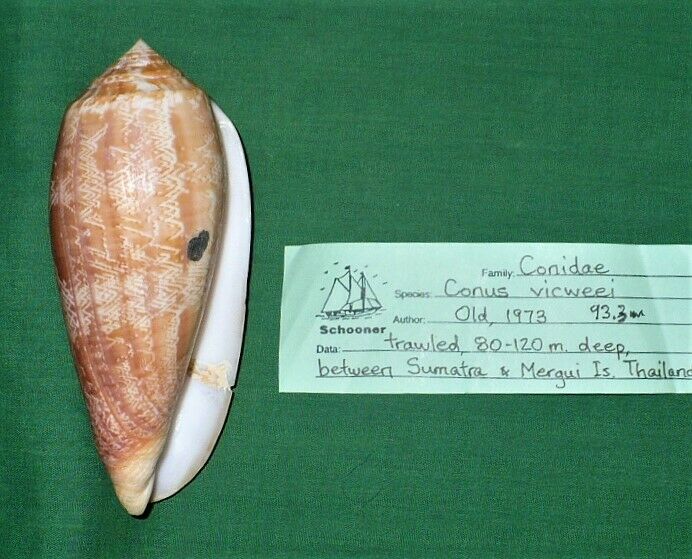 Family: Conidae
Species: Conus vicweei
Author: Old, 1973 93.3m
Schooner
Data: trawled, 80-120 m. deep,
between Sumatra & Mergui Is. Thailand